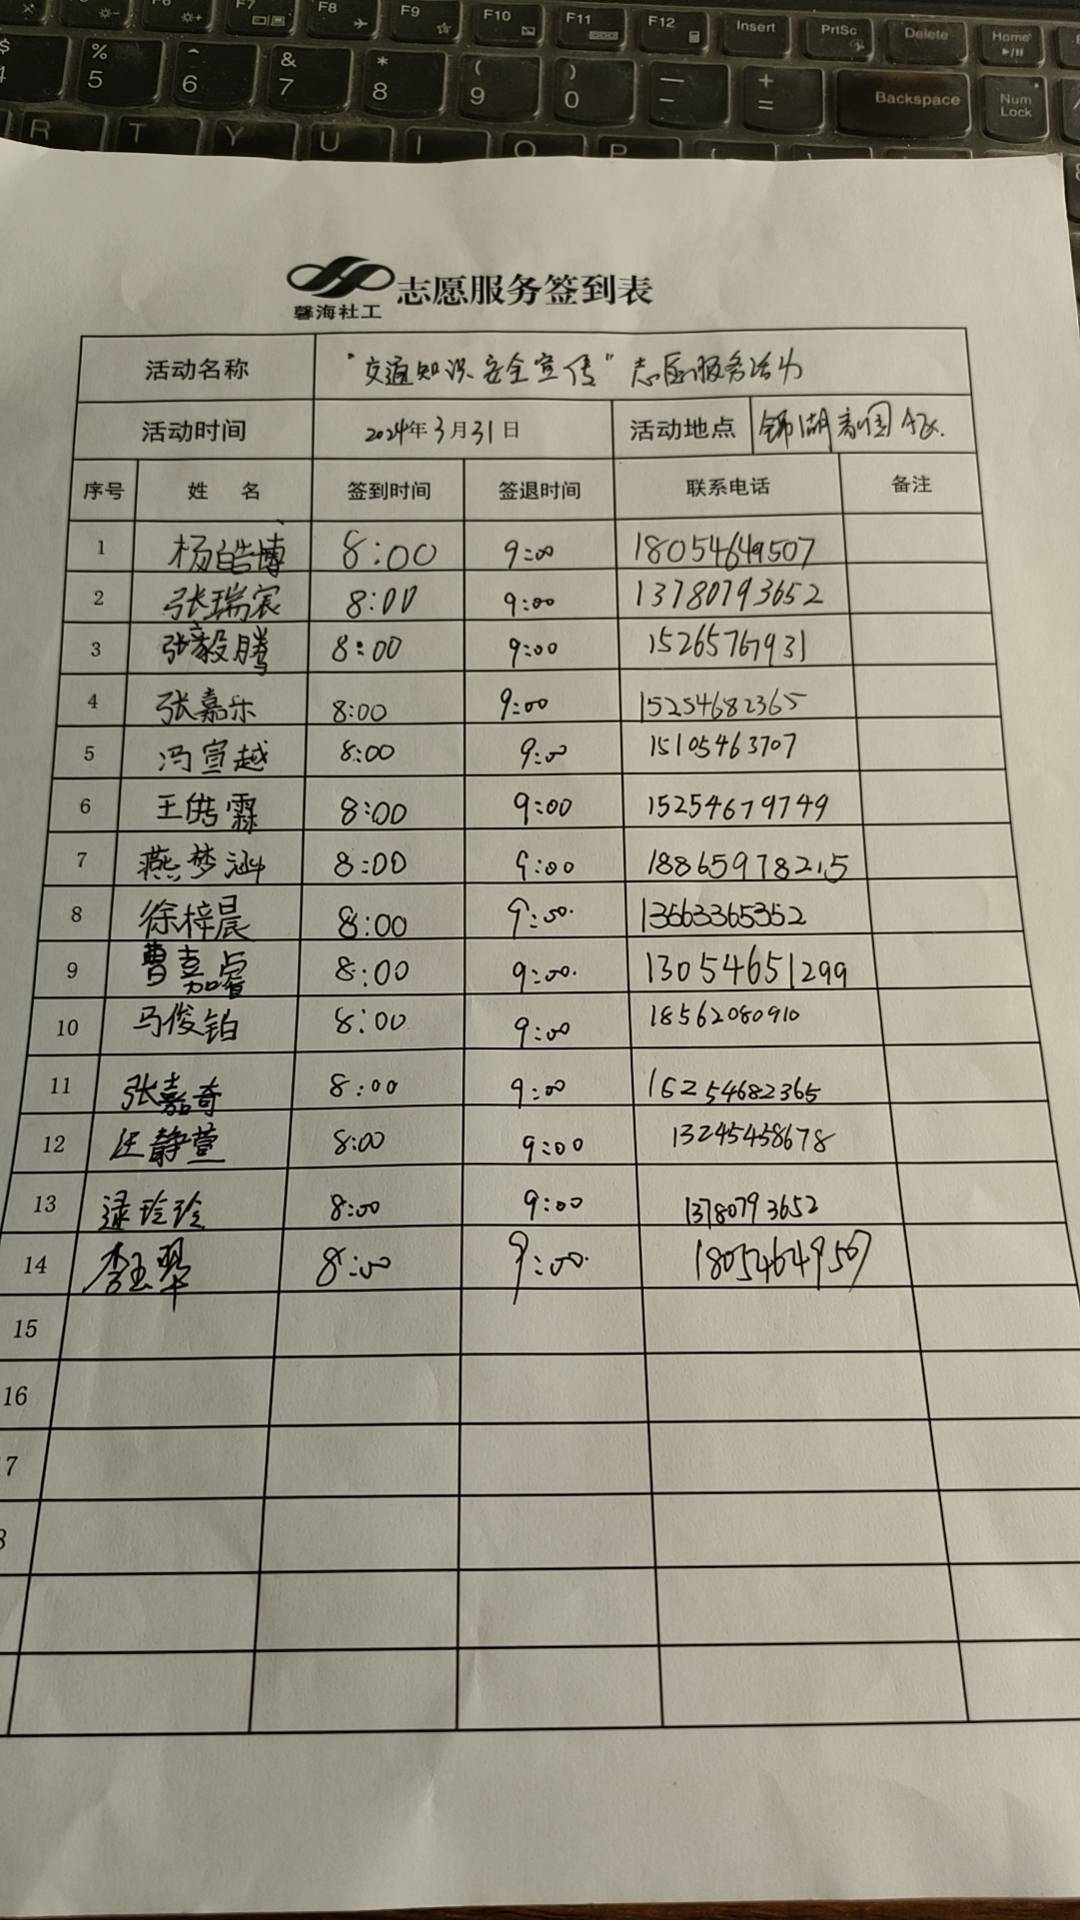 F7 F8 F9 F10 F11 F12 Insert PrtSc Delete Home
$ % ^ & * ( ) — +
4 5 6 7 8 9 0 - = Backspace Num Lock
R T Y U I O P
馨海社工 志愿服务签到表
活动名称 "交通知识安全宣传"志愿服务活动
活动时间 2024年3月31日 活动地点 锦湖 A区.
序号 姓 名 签到时间 签退时间 联系电话 备注
1 杨皓博 8:00 9:00 18054649507
2 张瑞宸 8:00 9:00 13780793652
3 张毅腾 8:00 9:00 15265767931
4 张嘉乐 8:00 9:00 15254682365
5 冯宣越 8:00 9:00 15105463707
6 王洪霖 8:00 9:00 15254679749
7 燕梦涵 8:00 9:00 18865978215
8 徐梓晨 8:00 9:00 13563365352
9 曹嘉睿 8:00 9:00 13054651299
10 马俊铂 8:00 9:00 18562080910
11 张嘉奇 8:00 9:00 15254682365
12 汪静萱 8:00 9:00 13245458678
13 逯玲玲 8:00 9:00 13780793652
14 李玉翠 8:00 9:00 18054649507
15
16
7
8